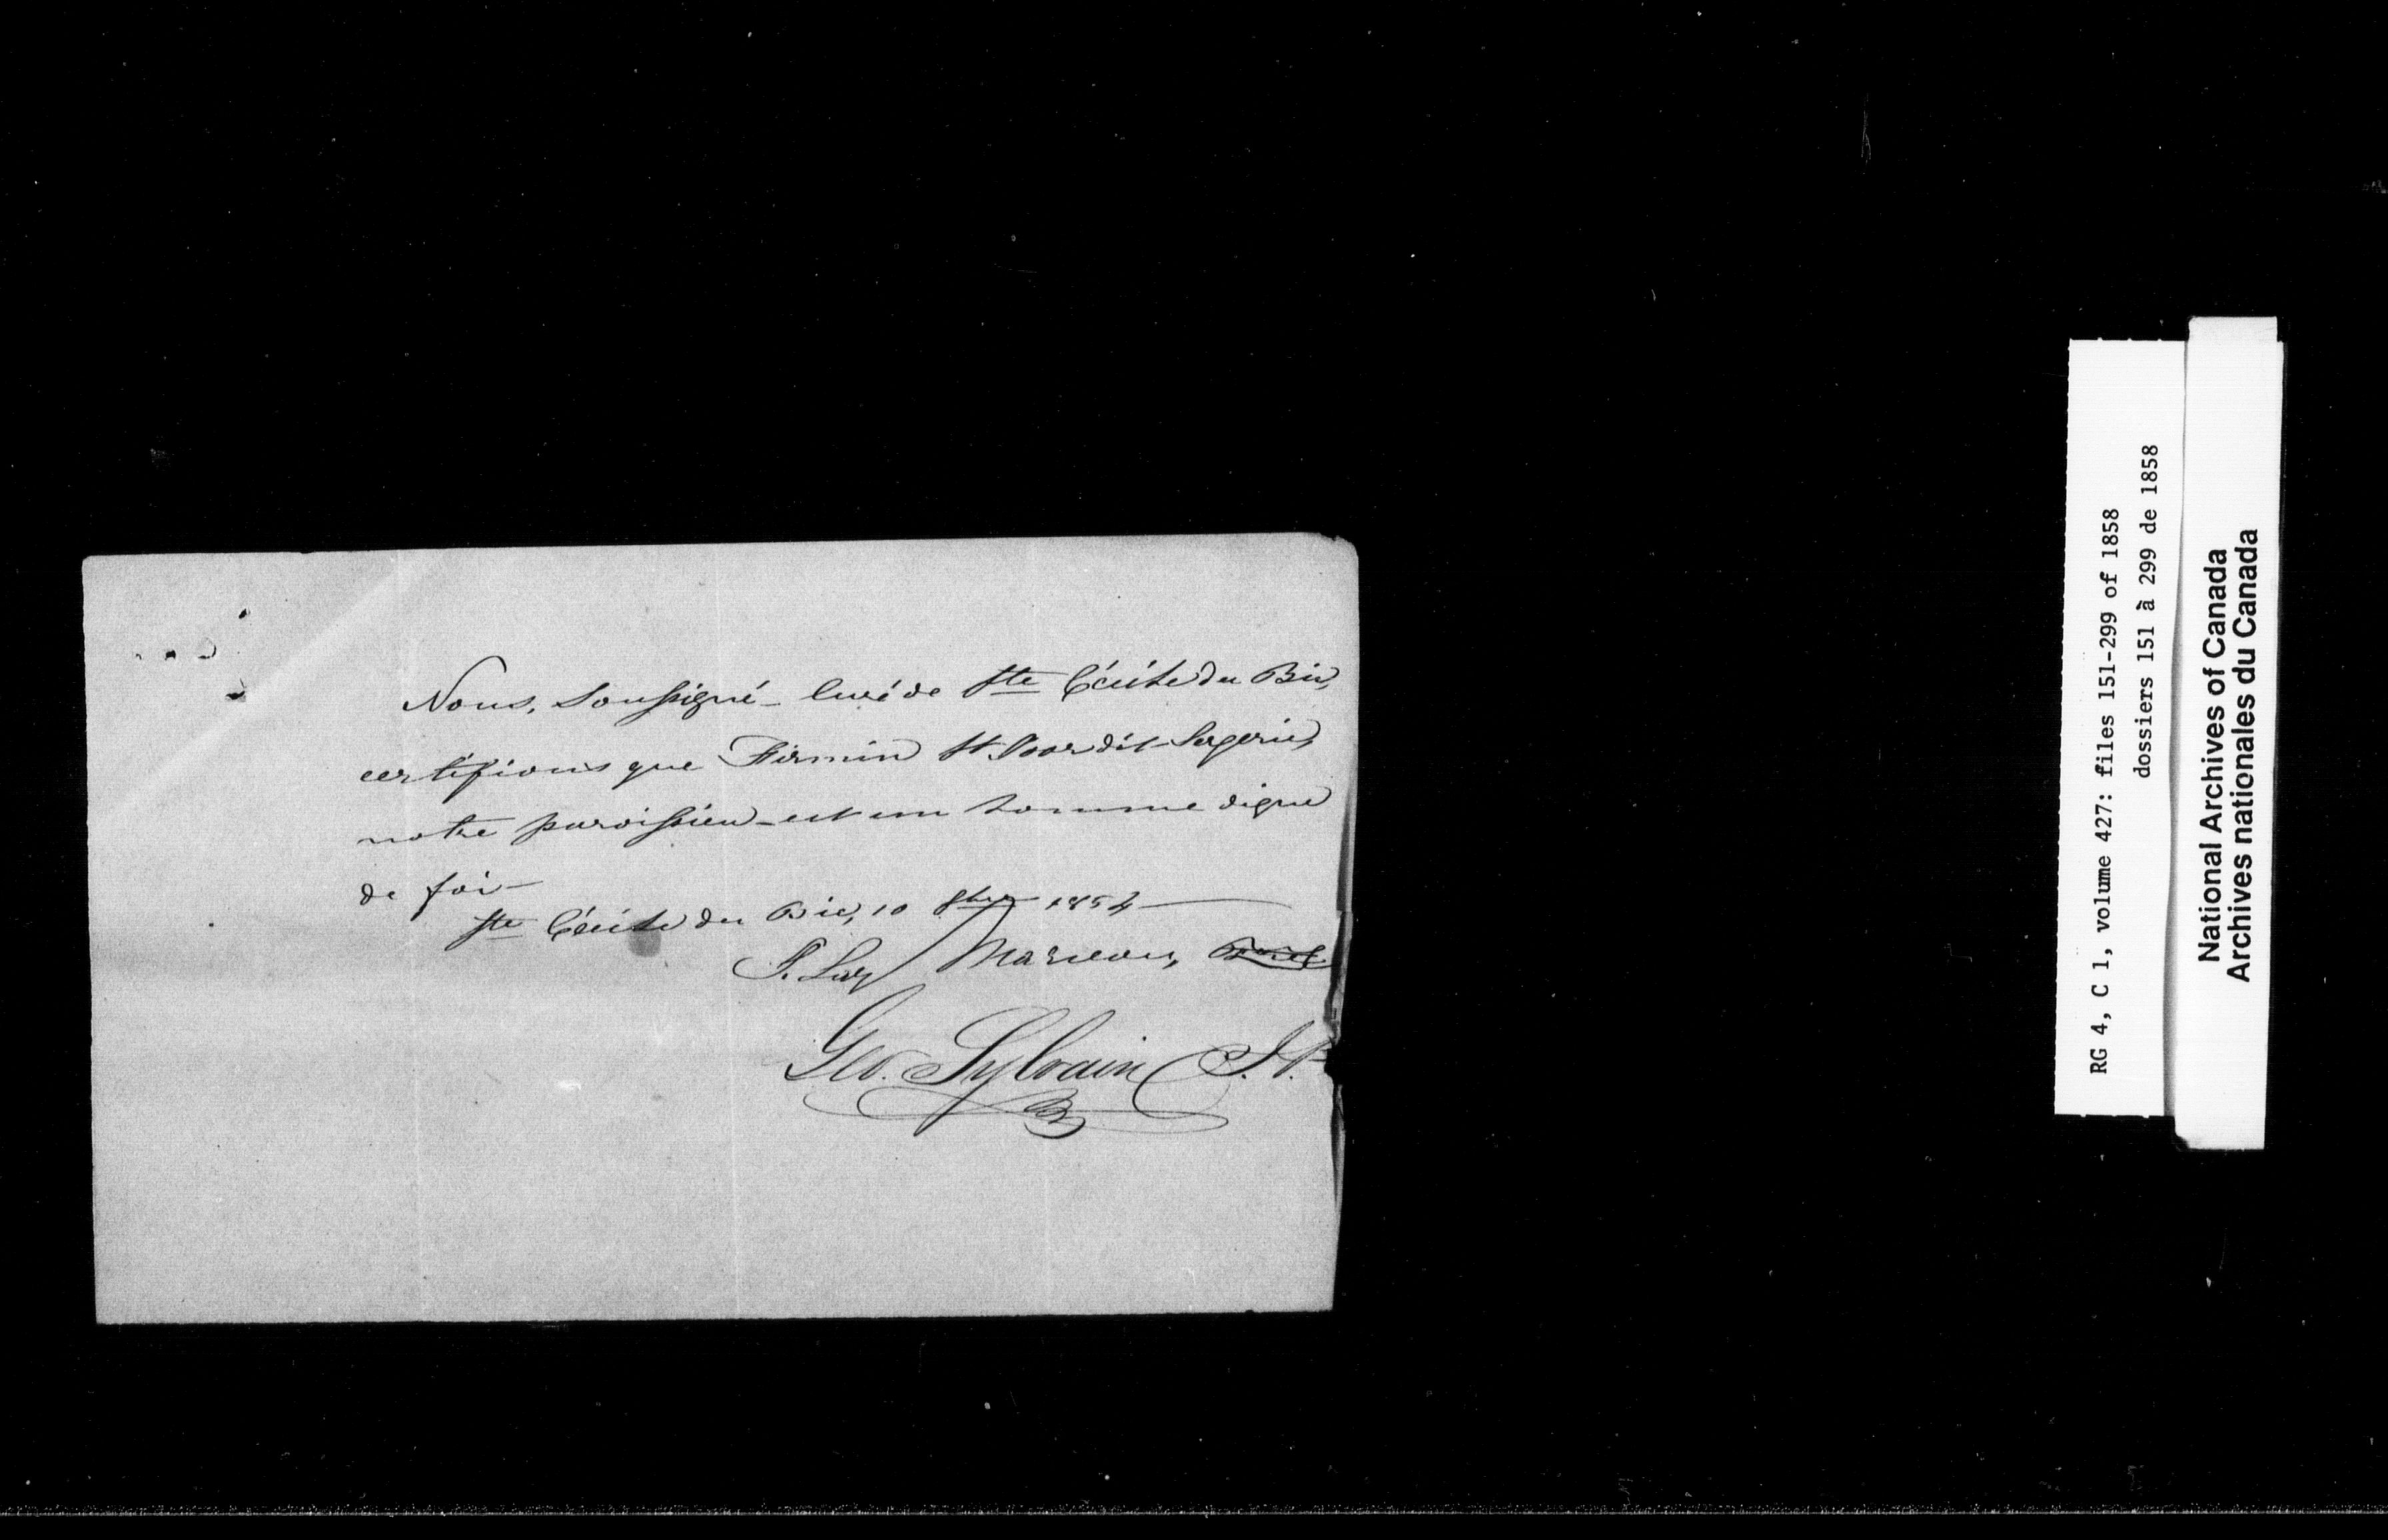 Nous, soussigné - Curé de Ste Cécile du Bic,
certifions que Firmin St. Pierre dit Lagerie,
notre paroissien - est un homme digne
de foi -
Ste Cécile du Bic, 10 8bre 1854
P. Luy Marceau, Ptre
Geo. Sylvain J.P.
RG 4, C 1, volume 427: files 151-299 of 1858
dossiers 151 à 299 de 1858
National Archives of Canada
Archives nationales du Canada